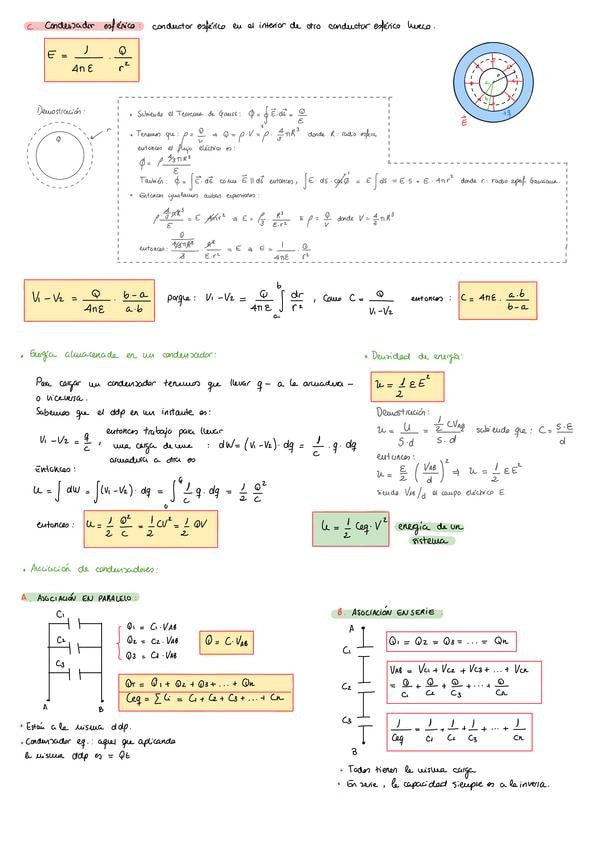 C. Condensador esférico: conductor esférico en el interior de otro conductor esférico hueco.
E = 1/4πε · Q/r²
Demostración:
Q
r
• Sabiendo el Teorema de Gauss: ϕ = ∮ E⃗·ds⃗ = Q/ε
• Tenemos que: ρ = Q/V ⇒ Q = ρ·V = ρ · 4/3 πR³ donde R: radio esfera
entonces el flujo eléctrico es:
ϕ = ρ 4/3 πR³ / ε
También: ϕ = ∫ E⃗·ds⃗ como E⃗ ∥ ds⃗ entonces, ∫ E·ds·cos 0 = E ∫ ds = E·S = E·4πr² donde r: radio superf. Gaussiana.
• Entonces igualamos ambas expresiones:
ρ · 4/3 πR³ / ε = E · 4πr² ⇒ E = ρ/3 · R³/ε·r² ρ = Q/V donde V = 4/3 πR³
entonces: Q / 4/3 πR³ / 3 · R³/ε·r² = E ⇒ E = 1/4πε · Q/r²
E⃗
+q
r
V₁ - V₂ = Q/4πε · b-a/a·b
porque: V₁ - V₂ = Q/4πε ∫ₐᵇ dr/r² , Como C = Q/V₁-V₂ entonces: C = 4πε · a·b/b-a
• Energía almacenada en un condensador:
Para cargar un condensador tenemos que llevar q- a la armadura -
o viceversa.
Sabemos que el ddp en un instante es:
V₁ - V₂ = q/C , entonces trabajo para llevar
una carga de una : dW = (V₁-V₂)·dq = 1/C · q · dq
armadura a otra es
Entonces:
U = ∫ dW = ∫(V₁-V₂)·dq = ∫₀^Q 1/C q·dq = 1/2 Q²/C
entonces: U = 1/2 Q²/C = 1/2 CV² = 1/2 QV
• Densidad de energía:
u = 1/2 ε E²
Demostración:
u = U/S·d = 1/2 CV_AB / S·d sabiendo que: C = S·ε/d
entonces:
u = ε/2 (V_AB/d)² ⇒ u = 1/2 ε E²
siendo V_AB/d el campo eléctrico E
U = 1/2 Ceq · V² energía de un
sistema
• Asociación de condensadores:
A. ASOCIACIÓN EN PARALELO:
C₁
C₂
C₃
A B
Q₁ = C₁·V_AB
Q₂ = C₂·V_AB
Q₃ = C₃·V_AB
Q = C·V_AB
Q_T = Q₁ + Q₂ + Q₃ + ... + Qn
Ceq = Σ Ci = C₁ + C₂ + C₃ + ... + Cn
• Están a la misma ddp.
• Condensador eq.: aquel que aplicando
la misma ddp es = Qt
B. ASOCIACIÓN EN SERIE:
A
C₁
C₂
C₃
B
Q₁ = Q₂ = Q₃ = ... = Qn
V_AB = V_C1 + V_C2 + V_C3 + ... + V_Cn
= Q/C₁ + Q/C₂ + Q/C₃ + ... + Q/Cn
1/Ceq = 1/C₁ + 1/C₂ + 1/C₃ + ... + 1/Cn
• Todos tienen la misma carga
• En serie, la capacidad siempre es a la inversa.